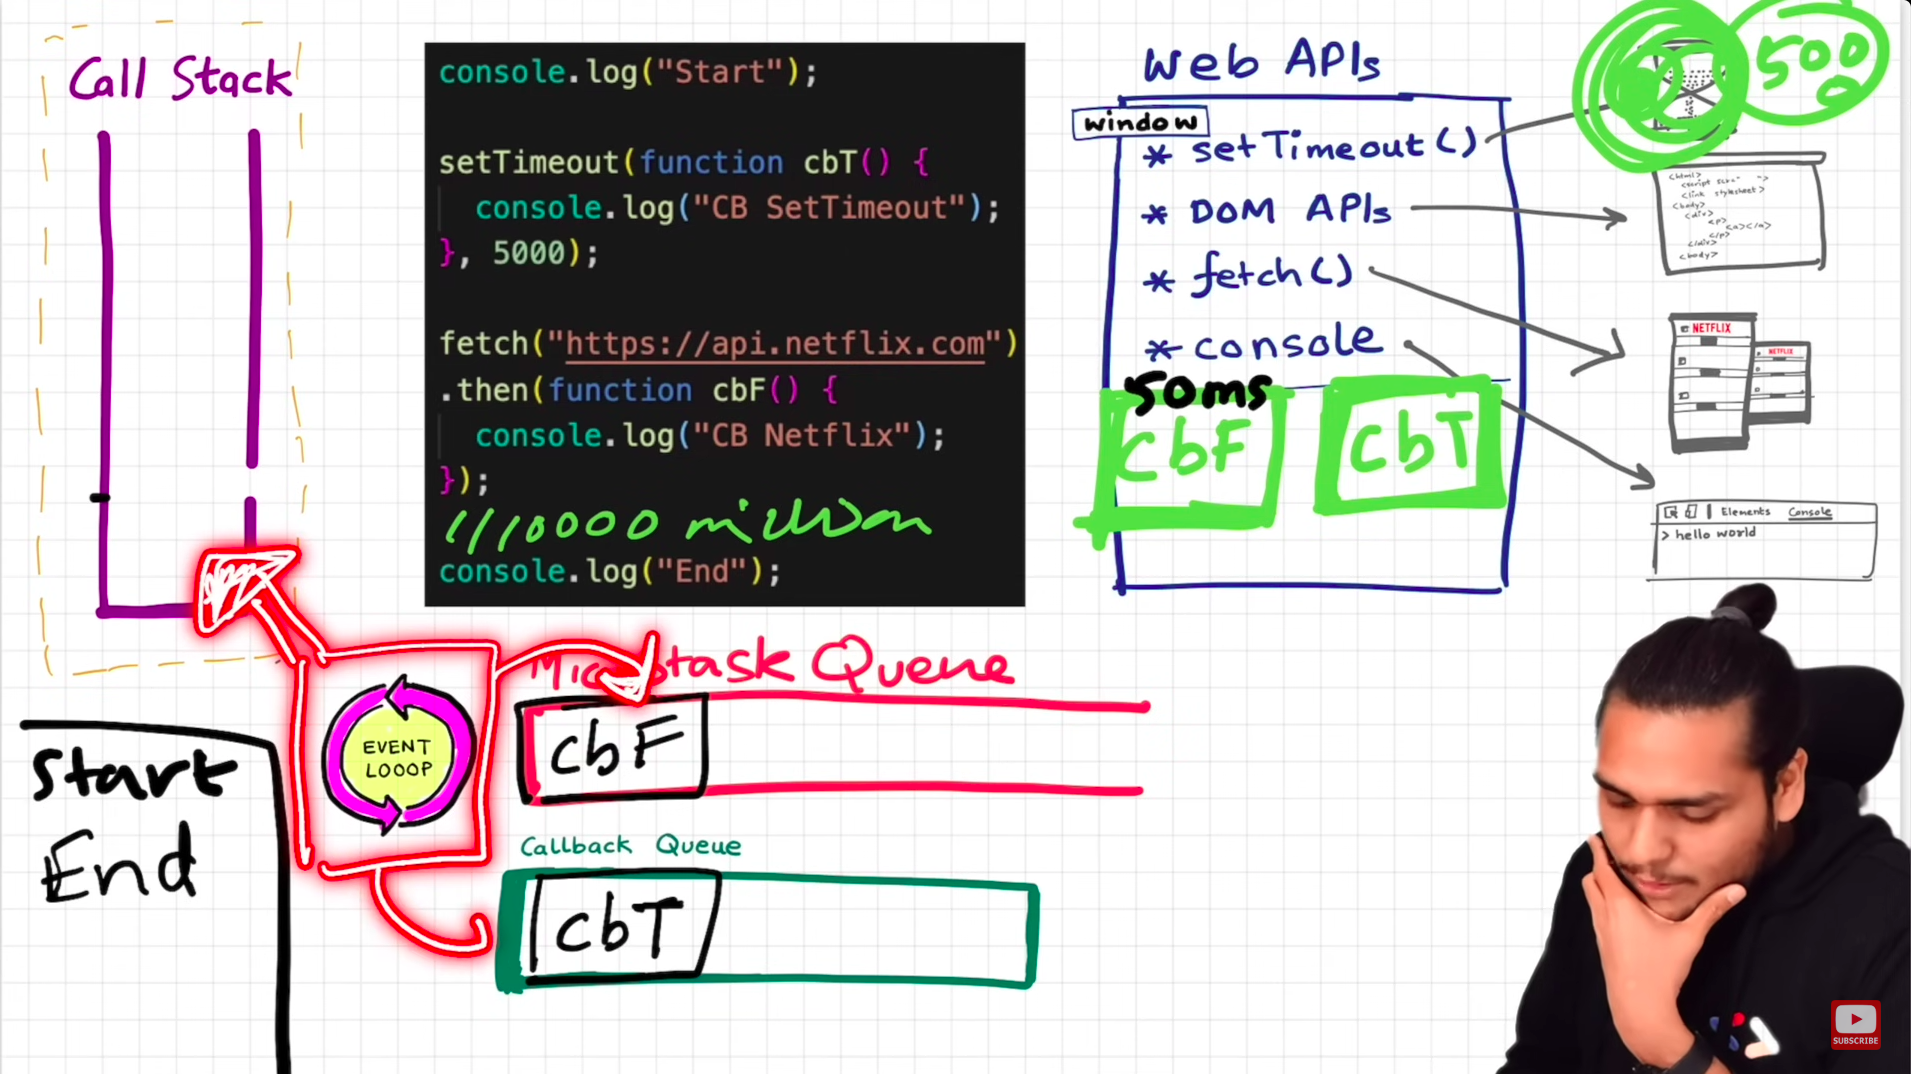 Call Stack
console.log("Start");
setTimeout(function cbT() {
console.log("CB SetTimeout");
}, 5000);
fetch("https://api.netflix.com")
.then(function cbF() {
console.log("CB Netflix");
});
// 10000 million
console.log("End");
Web APIs
window
* setTimeout()
* DOM APIs
* fetch()
* console
50ms
cbF
cbT
5000
<html>
<body>
<div>
<p>
<a></a>
</p>
</div>
<body>
NETFLIX
NETFLIX
Elements Console
> hello world
Microtask Queue
cbF
EVENT
LOOOP
Callback Queue
cbT
Start
End
SUBSCRIBE